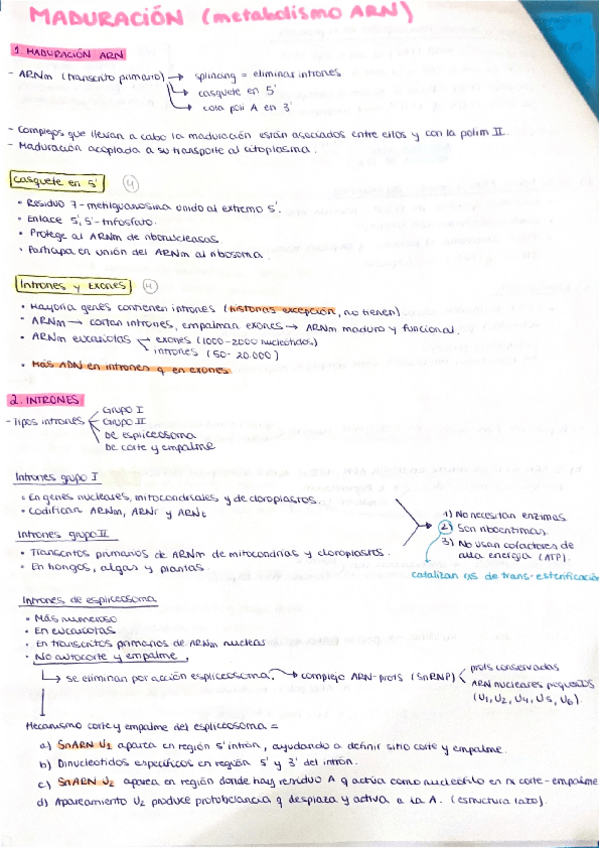 MADURACIÓN (metabolismo ARN)
1. MADURACIÓN ARN
- ARNm (transcrito primario) → splicing = eliminar intrones
→ casquete en 5'
→ cola poli A en 3'
- Complejos que llevan a cabo la maduración están asociados entre ellos y con la polim II.
- Maduración acoplada a su transporte al citoplasma.
Casquete en 5' (4)
• Residuo 7-metilguanosina unido al extremo 5'.
• Enlace 5',5'-trifosfato.
• Protege al ARNm de ribonucleasas.
• Participa en unión del ARNm al ribosoma.
Intrones y exones (4)
• Mayoría genes contienen intrones (histonas excepción, no tienen)
• ARNm → cortan intrones, empalman exones → ARNm maduro y funcional.
• ARNm eucariotas exones (1000-2000 nucleótidos)
intrones (50-20.000)
• Más ADN en intrones q en exones
2. INTRONES
- Tipos intrones Grupo I
Grupo II
De espliceosoma
De corte y empalme
Intrones grupo I
• En genes nucleares, mitocondriales y de cloroplastos.
• Codifican ARNm, ARNr y ARNt
Intrones grupo II
• Transcritos primarios de ARNm de mitocondrias y cloroplastos.
• En hongos, algas y plantas.
1) No necesitan enzimas
2) Son ribozimas.
3) No usan cofactores de
alta energía (ATP).
catalizan rxs de trans-esterificación
Intrones de espliceosoma
• Más numeroso
• En eucariotas
• En transcritos primarios de ARNm nuclear
• No autocorte y empalme.
→ se eliminan por acción espliceosoma. → complejo ARN-prots (SnRNP) prots conservadas
ARN nucleares pequeños
(U1, U2, U4, U5, U6).
Mecanismo corte y empalme del espliceosoma =
a) SnARN U1 aparea en región 5' intrón, ayudando a definir sitio corte y empalme.
b) Dinucleótidos específicos en región 5' y 3' del intrón.
c) SnARN U2 aparea en región donde hay residuo A q actúa como nucleófilo en rx corte-empalme
d) Apareamiento U2 produce protuberancia q desplaza y activa a la A. (estructura lazo).